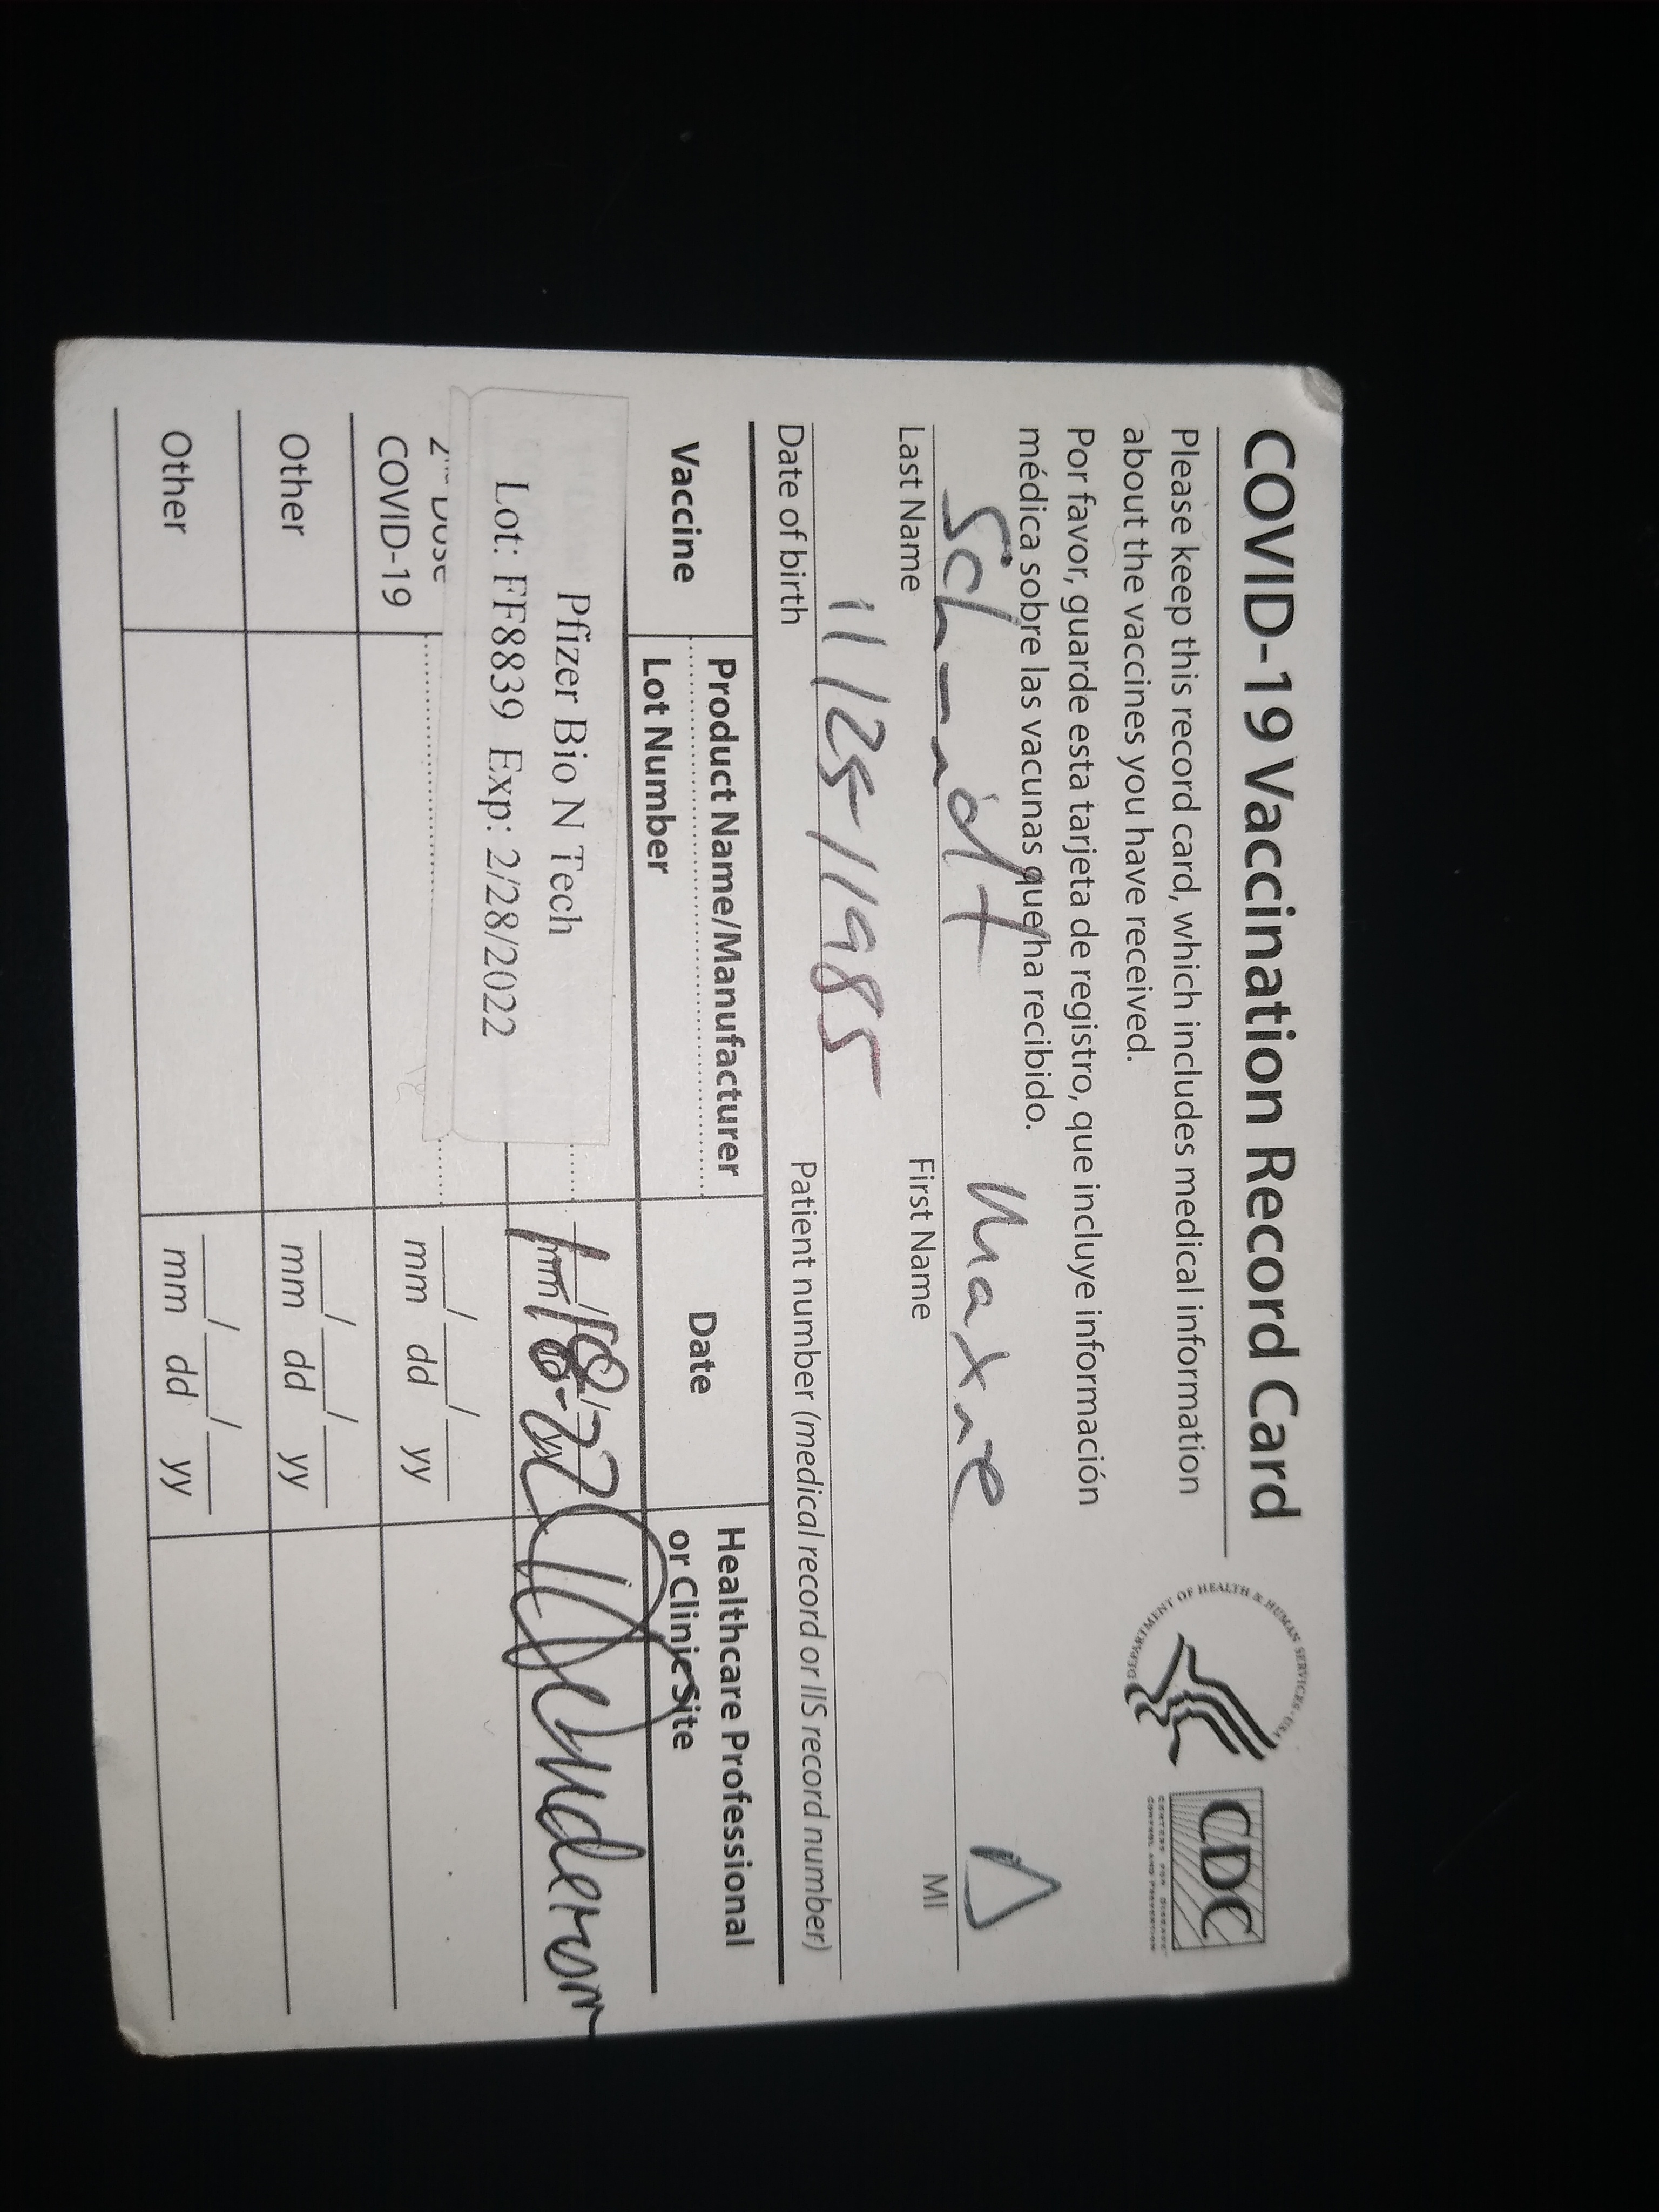 COVID-19 Vaccination Record Card
Please keep this record card, which includes medical information
about the vaccines you have received.
Por favor, guarde esta tarjeta de registro, que incluye información
médica sobre las vacunas que ha recibido.
DEPARTMENT OF HEALTH & HUMAN SERVICES · USA
CDC
CENTERS FOR DISEASE
CONTROL AND PREVENTION
Schmidt Maxine D
Last Name First Name MI
11/25/1985
Date of birth Patient number (medical record or IIS record number)
Vaccine Product Name/Manufacturer Date Healthcare Professional
Lot Number or Clinic Site
Pfizer Bio N Tech
mm yy
Lot: FF8839 Exp: 2/28/2022
2nd Dose
COVID-19 mm dd yy
Other mm dd yy
Other mm dd yy